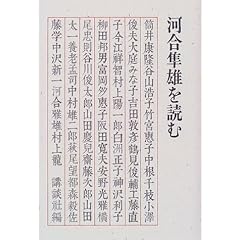 河合隼雄を読む
筒井康隆谷山浩子竹宮恵子中根千枝小澤
俊夫大庭みな子吉田敦彦鶴見俊輔工藤直
子今江祥智村上陽一郎白洲正子神沢利子
柳田邦男富岡多恵子阪田寛夫安野光雅横
尾忠則谷川俊太郎山田慶兒齋藤次郎山田
太一養老孟司中村雄二郎萩尾望都森毅佐
藤学中沢新一河合雅雄村上龍 講談社編